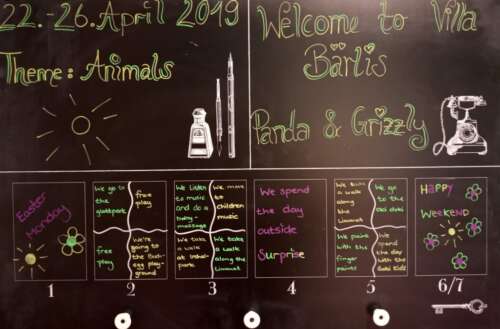 22.-26. April 2019
Theme: Animals
Welcome to Villa
Bärlis
Panda & Grizzly
Easter
Monday
1
We go to
the
free
play
free
play
We're going
to the
play-
ground
2
We listen
to music
and do a
massage
We move
to
children
music
We take a
walk
at
park
We take
a walk
along the
Limmat
3
We spend
the day
outside
Surprise
4
We take
a walk
along
the
Limmat
We go
to the
We paint
with the
finger
paints
We
spend
the day
with the
kids
5
Happy
Weekend
6/7